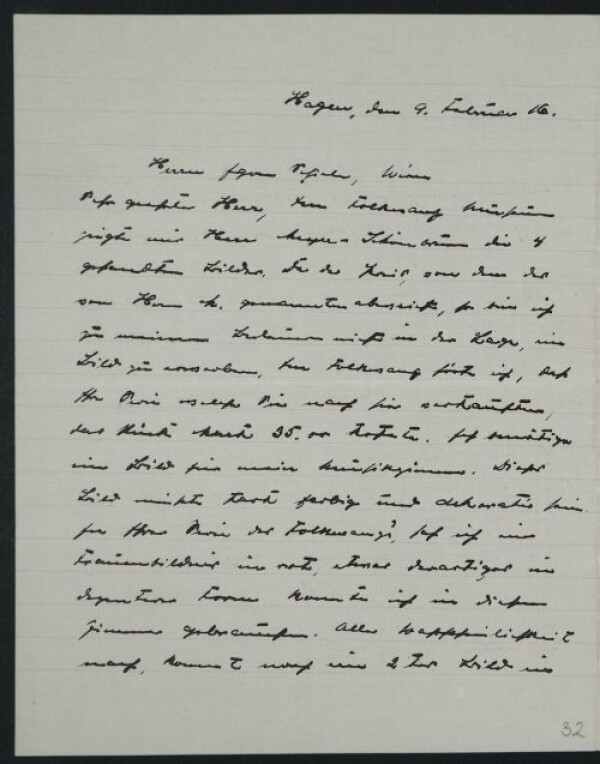 Hagen, den 9. Februar 16.
Herrn Egon Schiele, Wien
Sehr geehrter Herr, Im Folkwang Museum
zeigte mir Herr die 4
gesandten Bilder. Da der Preis, von dem der
von Herrn K. genannten abweicht, so bin ich
zu meinem Bedauern nicht in der Lage, ein
Bild zu erwerben. Im Folkwang hörte ich, daß
Ihr Preis welche Sie nach hier verkauften,
das Stück Mark 25.00 kostete. Ich benötige
ein Bild für mein Musikzimmer. Dieses
Bild müßte stark farbig und dekorativ sein.
Ihre des Folkwangs, sah ich ein
Frauenbildnis in rot, etwas derartiges in
Form könnte ich in diesem
Zimmer gebrauchen. Aller Wahrscheinlichkeit
nach, kommt noch ein 2tes Bild in
32